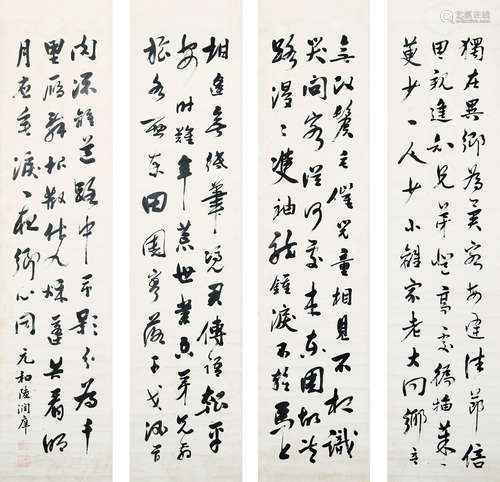 獨在異鄉為異客每逢佳節倍
思親遙知兄弟登高處徧插茱
萸少一人少小離家老大回鄉音
無改鬢毛催兒童相見不相識
笑問客從何處來東園故
路漫漫雙袖龍鍾淚不乾馬上
相逢無紙筆憑君傳語報平
安時難年荒世業空弟兄羈
旅各西東田園寥落干戈後骨
肉流離道路中弔影分為千
里雁辭根散作九秋蓬共看明
月應垂淚一夜鄉心同 元和陸潤庠